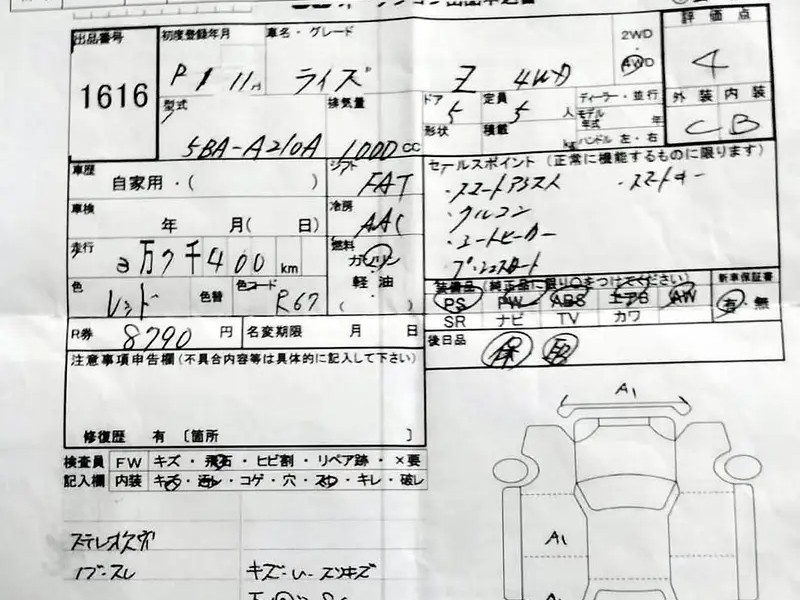 出品番号
1616
初度登録年月
R 1 11月
車名・グレード
ライズ Z 4WD
2WD
4WD
評価点
4
外装 内装
C B
型式
5BA-A210A
排気量
1000 CC
ドア
5
定員
5 人
ディーラー・並行
モデル年式 年
形状
積載 kg
ハンドル 左・右
車歴
自家用・( )
シフト
FAT
セールスポイント (正常に機能するものに限ります)
・スマートアシスト ・スマートキー
・クルコン
・シートヒーター
プッシュスタート
車検
年 月( 日)
冷房
AAC
走行
3万7千400km
燃料
ガソリン
軽油
( )
色
レッド
色替
色コード
R67
装備品 (純正品に限り○をつけてください)
PS PW ABS エアB AW
SR ナビ TV カワ
新車保証書
有・無
R券
8790 円
名変期限 月 日
後日品
保 取
注意事項申告欄 (不具合内容等は具体的に記入して下さい)
修復歴 有 〔箇所 〕
検査員
記入欄
FW キズ・飛石・ヒビ割・リペア跡・×要
内装 キズ・汚レ・コゲ・穴・スレ・キレ・破レ
A1
A1
ステレオ欠